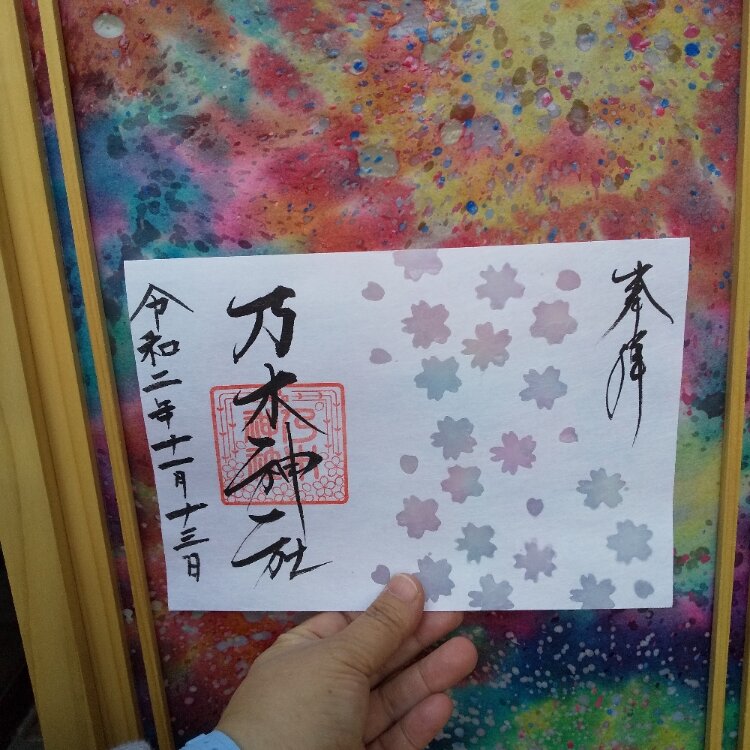 奉拝
乃木神社
令和二年十一月十三日